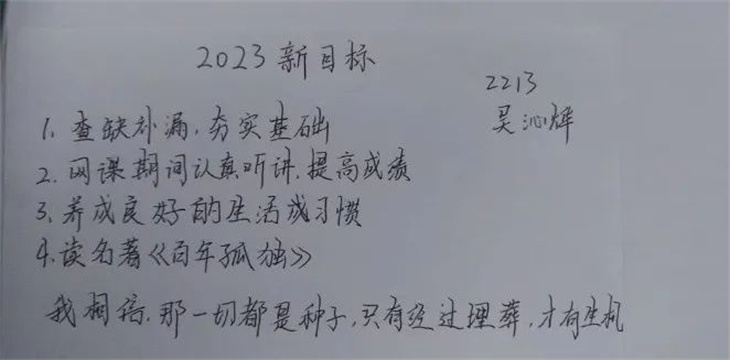 2023新目标
2213
吴沁烨
1. 查缺补漏,夯实基础
2. 网课期间认真听讲,提高成绩
3. 养成良好的生活成习惯
4. 读名著《百年孤独》
我相信,那一切都是种子,只有经过埋葬,才有生机